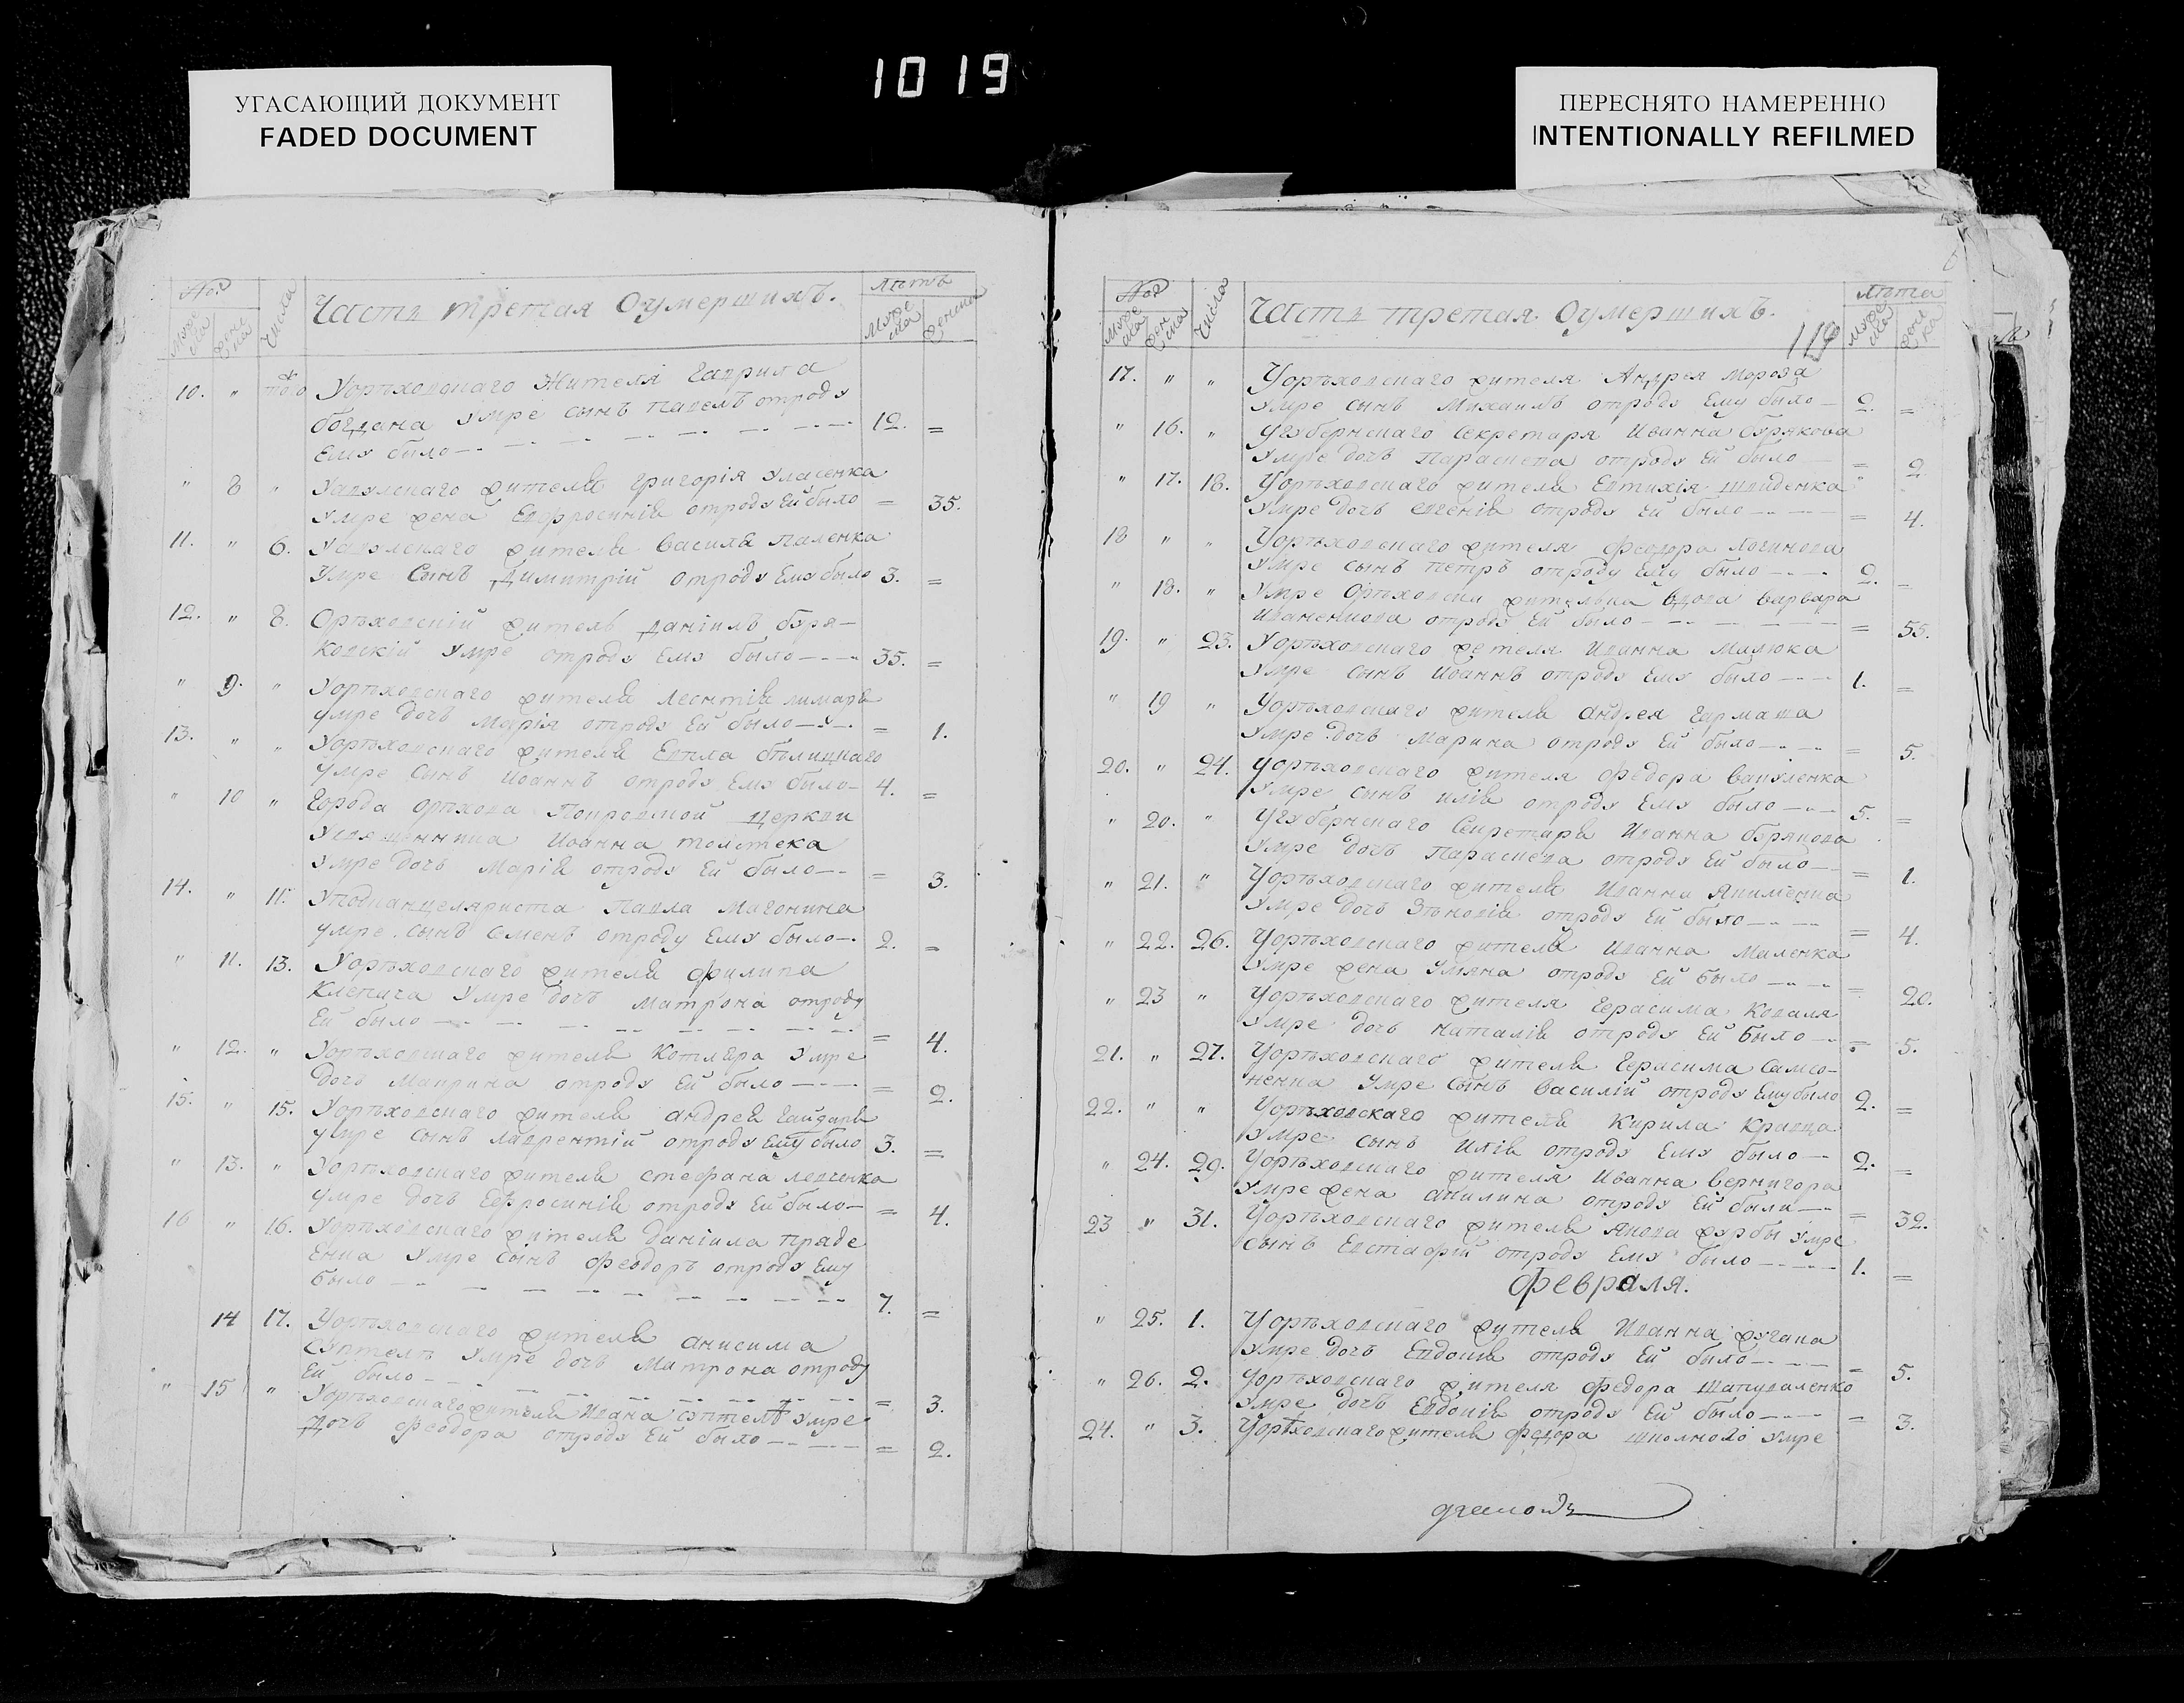 1019
УГАСАЮЩИЙ ДОКУМЕНТ
FADED DOCUMENT
ПЕРЕСНЯТО НАМЕРЕННО
INTENTIONALLY REFILMED
Часть третая Оумершихъ.
10. " Уорѣховскаго Жителя Гаврила
богдана умре сынъ павелъ отроду
Ему было 12. =
" 8 " жителя григорія Уласенка
умре жена Евфросиніѣ отроду Ей было = 35.
11. " 6. жителя василя
умре Сынъ Димитрій отроду Ему было 3. =
12. " 8. Орѣховскій житель даніилъ бэря-
ковскій умре отроду Ему было 35. =
" 9. " Уорѣховскаго жителя леонтія лимаря
умре дочь марія отроду Ей было = 1.
13. " " Уорѣховскаго жителя
умре сынъ Иоаннъ отроду Ему было 4. =
" 10 " Города орѣхова Покровской церкви
Усвященника Иоанна
умре дочь Марія отроду Ей было = 3.
14. " 11. Уподканцеляриста Павла
умре сынъ Семенъ отроду Ему было 2. =
" 11. 13. Уорѣховскаго жителя филипа
Клепача умре дочь матрона отроду
Ей было = 4.
" 12. " Уорѣховскаго жителя Котляра умре
дочь отроду Ей было = 2.
15. " 15. Уорѣховскаго жителя андрея Гайдаря
умре сынъ лаврентій отроду Ему было 3. =
" 13. " Уорѣховскаго жителя стефана левченка
умре дочь Евфросиніѣ отроду Ей было = 4.
16 " 16. Уорѣховскаго жителя даніила
умре Сынъ феодоръ отроду Ему
было 7. =
14 17. Уорѣховскаго жителя анисима
умре дочь Матрона отроду
Ей было = 3.
" 15 " Уорѣховскаго жителя Ивана умре
Дочь феодора отроду Ей было = 2.
Часть третая Оумершихъ.
118
17. " " Уорѣховскаго жителя Андрея Мороза
умре сынъ Михаилъ отроду Ему было 2. =
" 16. " Угубернскаго Секретаря Иванна бэрякова
умре дочь Параскева отроду Ей было = 2
" 17. 18. Уорѣховскаго жителя Евтихія
умре дочь евгенія отроду Ей было = 4.
18 " " Уорѣховскаго жителя феодора логинова
умре сынъ петръ отроду Ему было 2. =
" 18. " умре жителька вдова варвара
отроду Ей было = 55.
19. " 23. Уорѣховскаго жителя Иванна Малюка
умре сынъ Иоаннъ отроду Ему было 1. =
" 19 " Уорѣховскаго жителя андрея гармаша
умре дочь марина отроду Ей было = 5.
20. " 24. Уорѣховскаго жителя федора
умре сынъ илія отроду Ему было 5. =
" 20. " Угубернскаго Секретаря Иванна бэрякова
умре дочь Параскева отроду Ей было = 1.
" 21. " Уорѣховскаго жителя Иванна Якименка
умре дочь отроду Ей было = 4.
" 22. 26. Уорѣховскаго жителя Иванна Маленка
умре жена отроду Ей было = 20.
" 23 " Уорѣховскаго жителя Герасима Коваля
умре дочь наталія отроду Ей было = 5.
21. " 27. Уорѣховскаго жителя Герасима Само-
ненка умре сынъ василій отроду Ему было 2. =
22. " " Уорѣховскаго жителя Кирила Кравца
умре сынъ Илія отроду Ему было 2. =
" 24. 29. Уорѣховскаго жителя Иванна вернигора
умре жена акилина отроду Ей было = 32.
23 " 31. Уорѣховскаго жителя Якова журбы умре
сынъ Евстафій отроду Ему было 1. =
февраля.
" 25. 1. Уорѣховскаго жителя Иванна
умре дочь Евдокія отроду Ей было = 5.
" 26. 2. Уорѣховскаго жителя федора Шаповаленко
умре дочь Евдокія отроду Ей было = 3.
24. " 3. Уорѣховскаго жителя федора умре